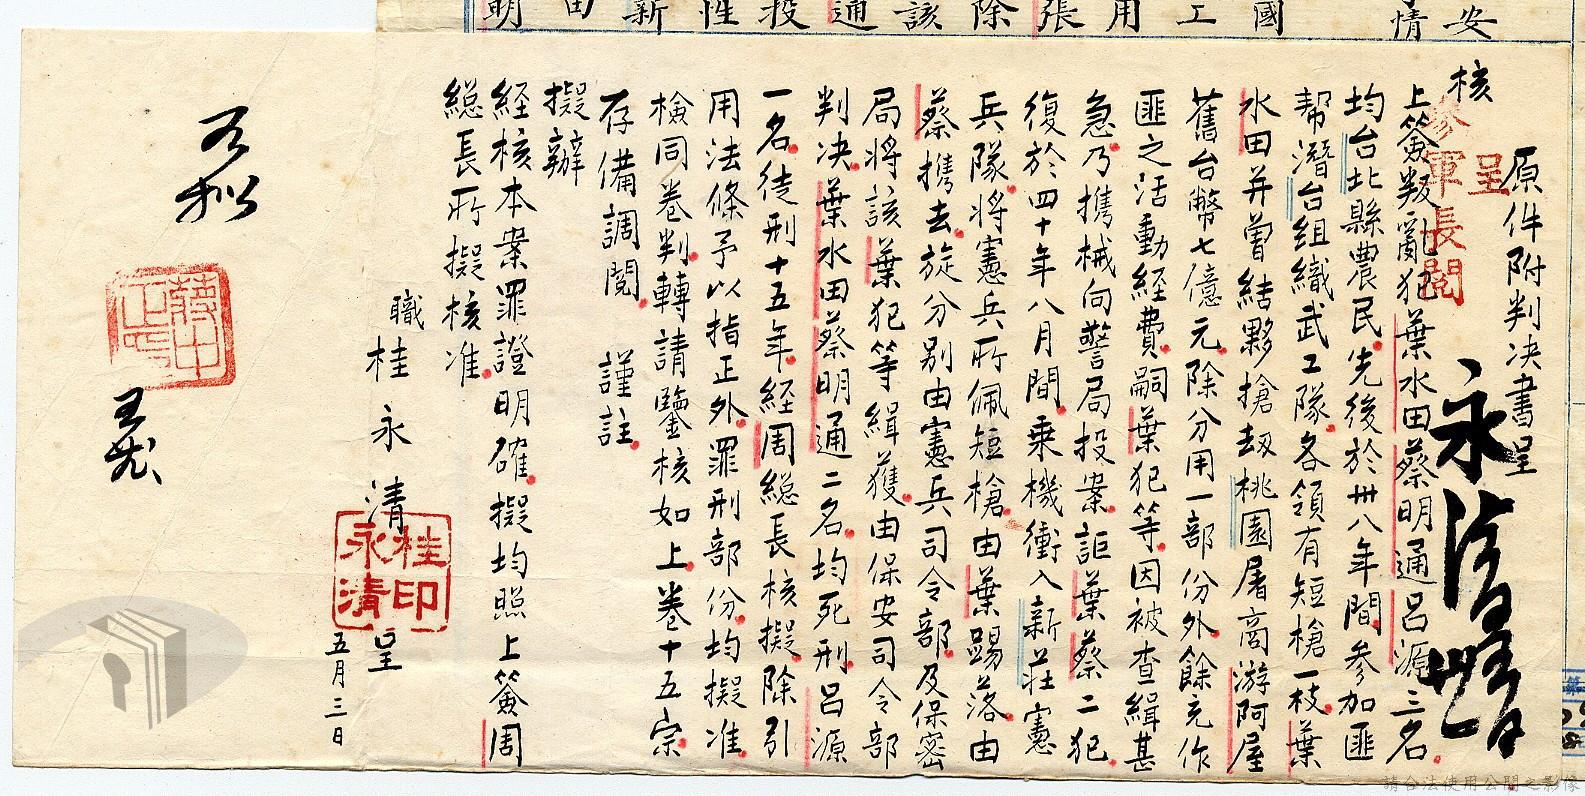 安
情
國
工
用
張
除
該
通
投
性
新
明
原件附判决書呈
呈
參軍長閱
核
上簽叛亂犯葉水田蔡明通呂源三名
均台北縣農民先後於卅八年間參加匪
幫潛台組織武工隊各領有短槍一枝葉
水田并曾結夥搶刼桃園屠商游阿屋
舊台幣七億元除分用一部份外餘充作
匪之活動經費嗣葉犯等因被查緝甚
急乃携械向警局投案詎葉蔡二犯
復於四十年八月間乘機衝入新莊憲
兵隊將憲兵所佩短槍由葉踢落由
蔡携去旋分別由憲兵司令部及保密
局將該葉犯等緝獲由保安司令部
判决葉水田蔡明通二名均死刑呂源
一名徒刑十五年經周總長核擬除引
用法條予以指正外罪刑部份均擬准
檢同卷判轉請鑒核如上卷十五宗
存備調閱 謹註
擬辦
經核本案罪證明確擬均照上簽周
總長所擬核准
職桂永清呈
桂永清印
五月三日
如擬
蔣中正印
請合法使用公開之影像